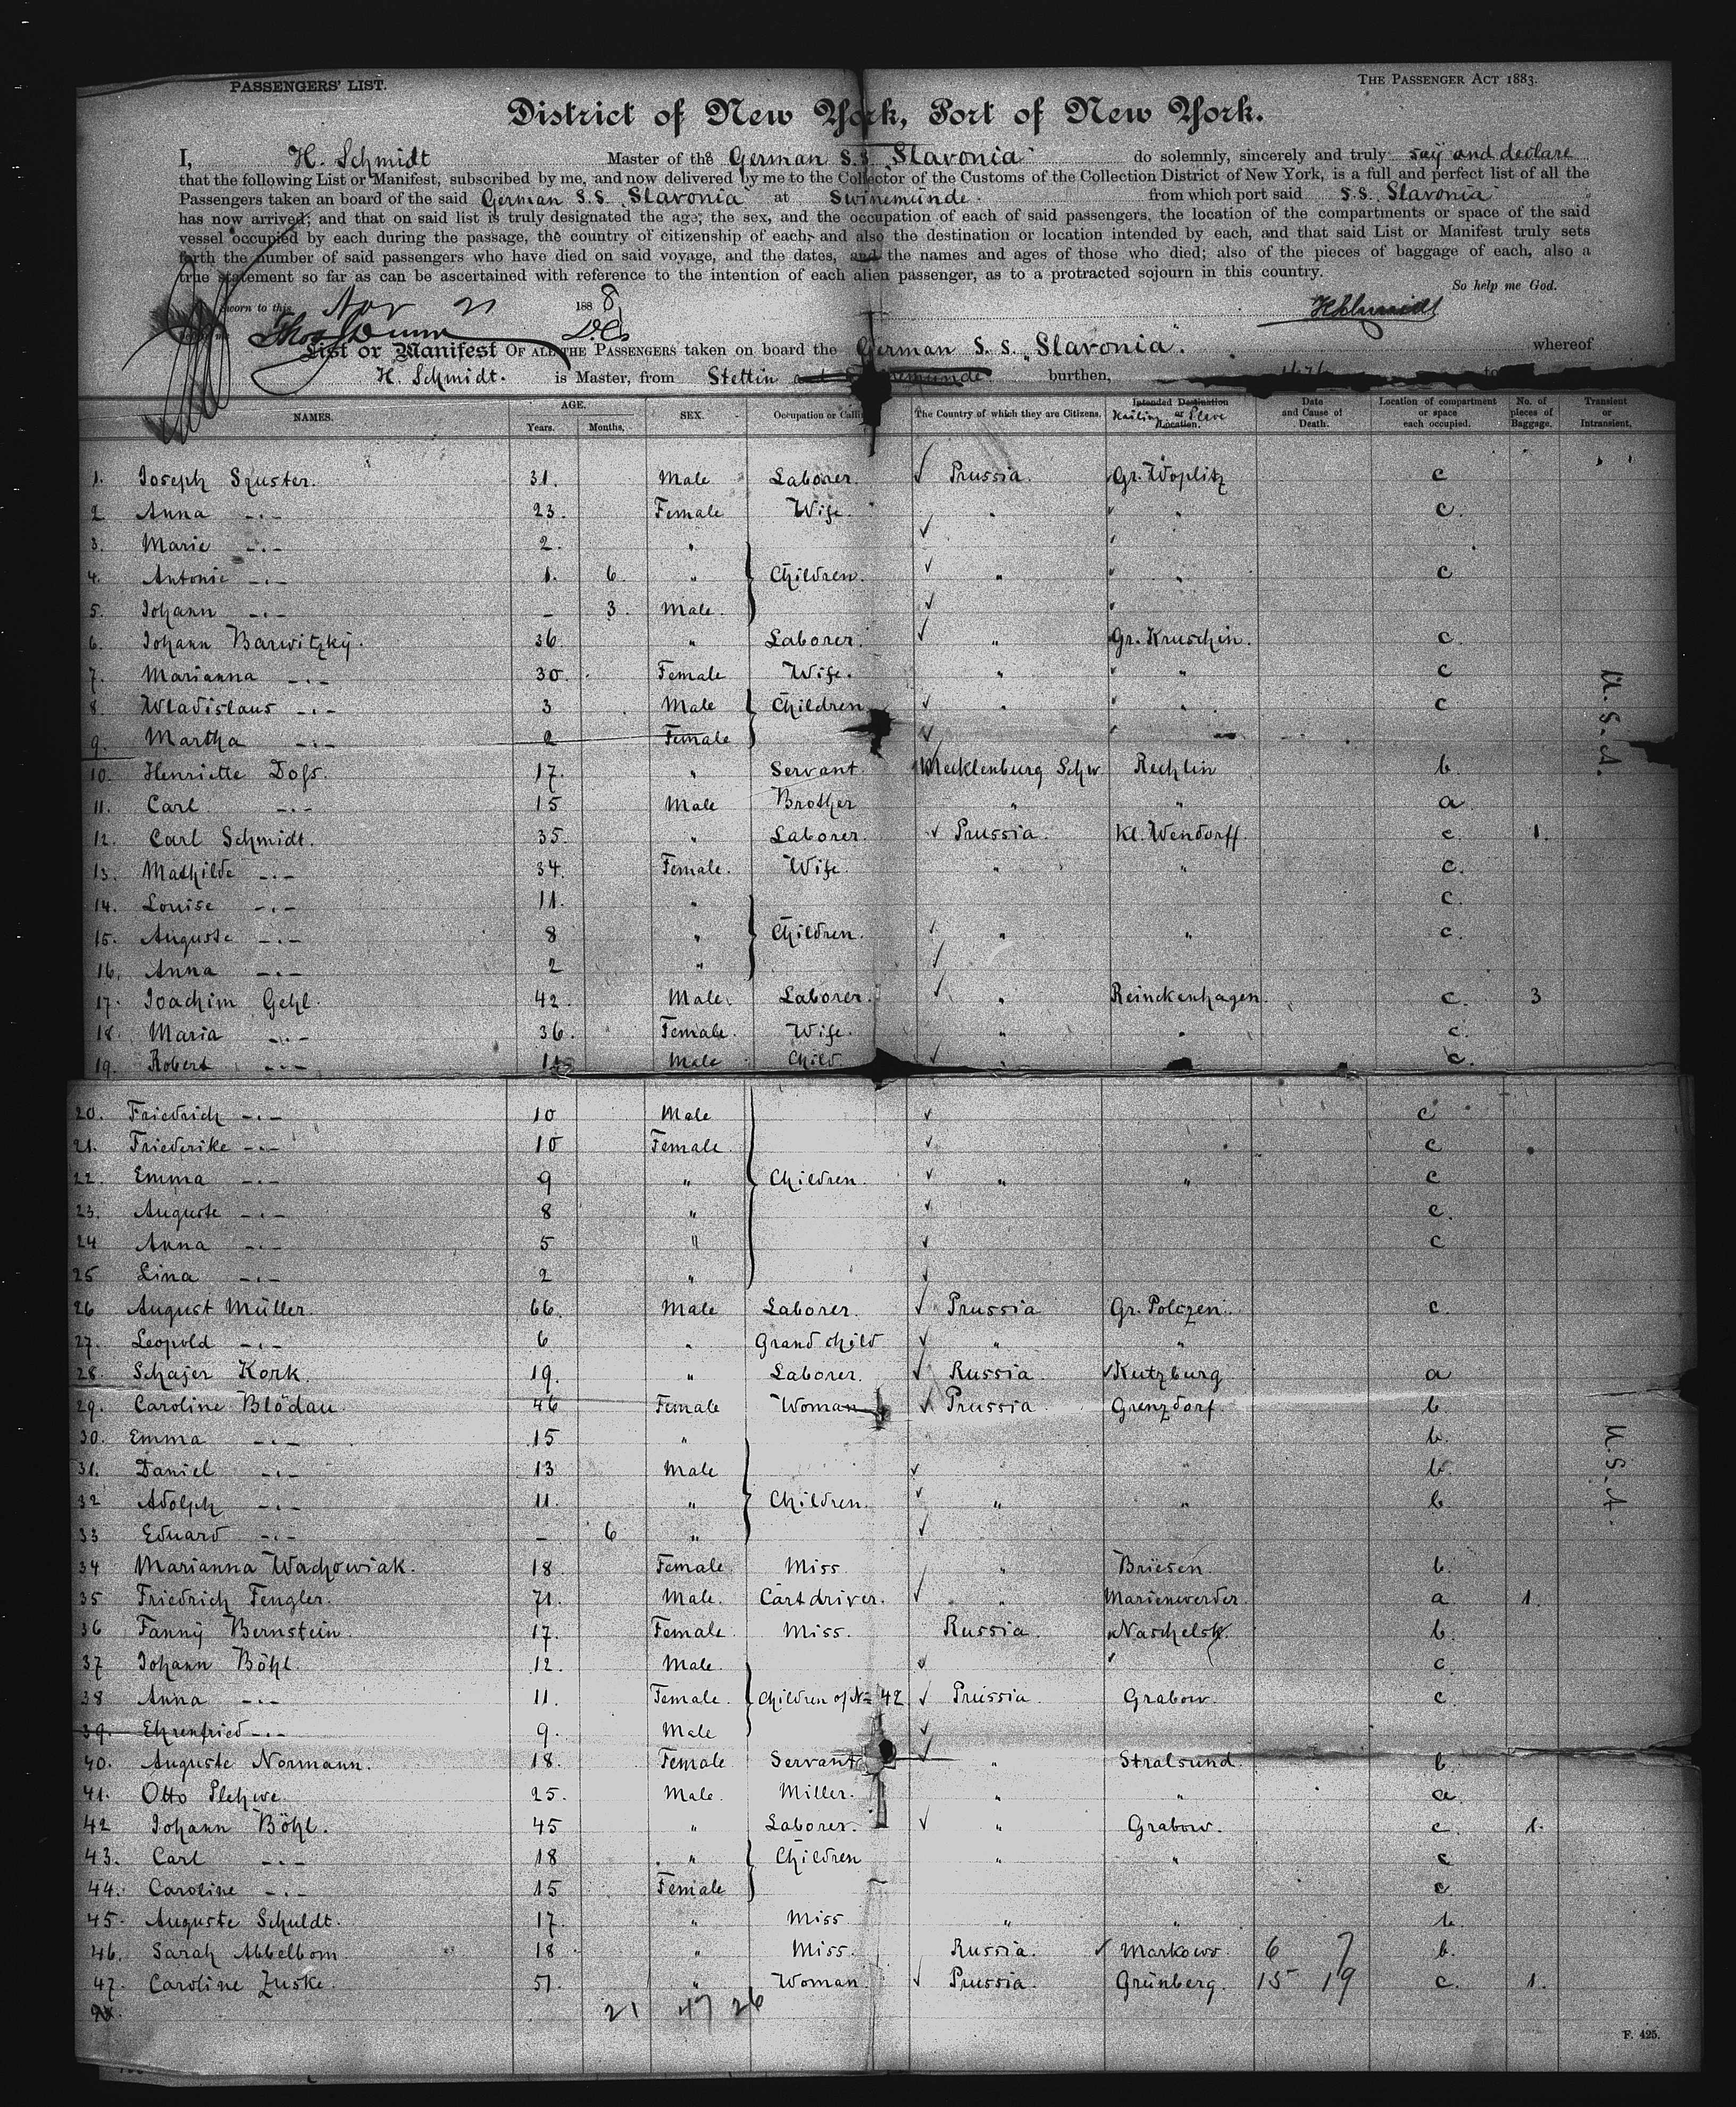 PASSENGERS' LIST.
THE PASSENGER ACT 1883.
District of New York, Port of New York.
I, H. Schmidt Master of the German S.S. Slavonia do solemnly, sincerely and truly say and declare
that the following List or Manifest, subscribed by me, and now delivered by me to the Collector of the Customs of the Collection District of New York, is a full and perfect list of all the
Passengers taken on board of the said German S.S. Slavonia at Swinemünde. from which port said S.S. Slavonia
has now arrived; and that on said list is truly designated the age, the sex, and the occupation of each of said passengers, the location of the compartments or space of the said
vessel occupied by each during the passage, the country of citizenship of each, and also the destination or location intended by each, and that said List or Manifest truly sets
forth the number of said passengers who have died on said voyage, and the dates, and the names and ages of those who died; also of the pieces of baggage of each, also a
true statement so far as can be ascertained with reference to the intention of each alien passenger, as to a protracted sojourn in this country.
So help me God.
Sworn to this Nov 21 1888
HSchmidt
List or Manifest OF ALL THE PASSENGERS taken on board the German S. S. "Slavonia". whereof
H. Schmidt. is Master, from Stettin burthen,
NAMES. AGE. Years. Months. SEX. Occupation or Calling The Country of which they are Citizens. Intended Destination or Location. Date and Cause of Death. Location of compartment or space each occupied. No. of pieces of Baggage. Transient or Intransient.
1. Joseph Szuster. 31. Male Laborer. Prussia. Gr. Woplitz c
2 Anna -.- 23. Female Wife. " " c.
3. Marie -.- 2. "
4. Antonie -.- 1. 6. " Children. " " c
5. Johann -.- - 3. Male.
6. Johann Barwitzky. 36. " Laborer. " Gr. Kruschin. c.
7. Marianna -.- 30. Female Wife. " " c
8. Wladislaus -.- 3 Male Children " " c
9. Martha -.- 2 Female
10. Henriette Doss. 17. " Servant. Mecklenburg Schw Rechlin b.
11. Carl -.- 15 Male Brother " " a
12. Carl Schmidt. 35. " Laborer. Prussia. Kl. Wendorff. c. 1.
13. Mathilde -.- 34. Female. Wife. " " c.
14. Louise -.- 11. " c.
15. Auguste -.- 8 " Children. " " c.
16. Anna -.- 2 "
17. Joachim Gehl. 42. Male. Laborer. " Reinckenhagen. c. 3
18. Maria -.- 36. Female. Wife. " " c.
19. Robert -.- Male Child " c.
20. Friedrich -.- 10 Male c
21. Friederike -.- 10 Female c
22. Emma -.- 9 " Children. " " c
23. Auguste -.- 8 " c.
24 Anna -.- 5 " c
25 Lina -.- 2 "
26 August Müller. 66. Male Laborer. Prussia Gr. Polczen. c.
27. Leopold -.- 6 " Grand child " "
28. Schajer Kork. 19. " Laborer. Russia. Kutzburg a
29. Caroline Blödau. 46 Female Woman Prussia. Grenzdorf. b.
30. Emma -.- 15 " b.
31. Daniel -.- 13 Male b.
32 Adolph -.- 11. " Children. " " b
33 Eduard -.- - 6 "
34 Marianna Wachowiak. 18. Female. Miss " Briesen. b.
35 Friedrich Fengler. 71. Male. Cartdriver. " Marienwerder. a. 1.
36 Fanny Bernstein. 17. Female. Miss. Russia. Naschelsk. b.
37 Johann Böhl. 12. Male. c.
38 Anna -.- 11. Female. Children of No 42 Prussia. Grabow. c.
39. Ehrenfried -.- 9. Male
40. Auguste Normann. 18. Female Servant " Stralsund. b.
41. Otto Plehwe. 25. Male. Miller. " " a.
42 Johann Böhl. 45 " Laborer. " Grabow. c. 1.
43. Carl -.- 18 " Children " " c
44. Caroline -.- 15 Female c.
45. Auguste Schuldt. 17. " Miss " " b.
46. Sarah Abbelbom. 18 " Miss. Russia. Markowo. 6 7 b.
47. Caroline Zuske. 51. " Woman Prussia. Grünberg. 15 19 c. 1.
21 47 26
U.S.A.
U.S.A.
F. 425.